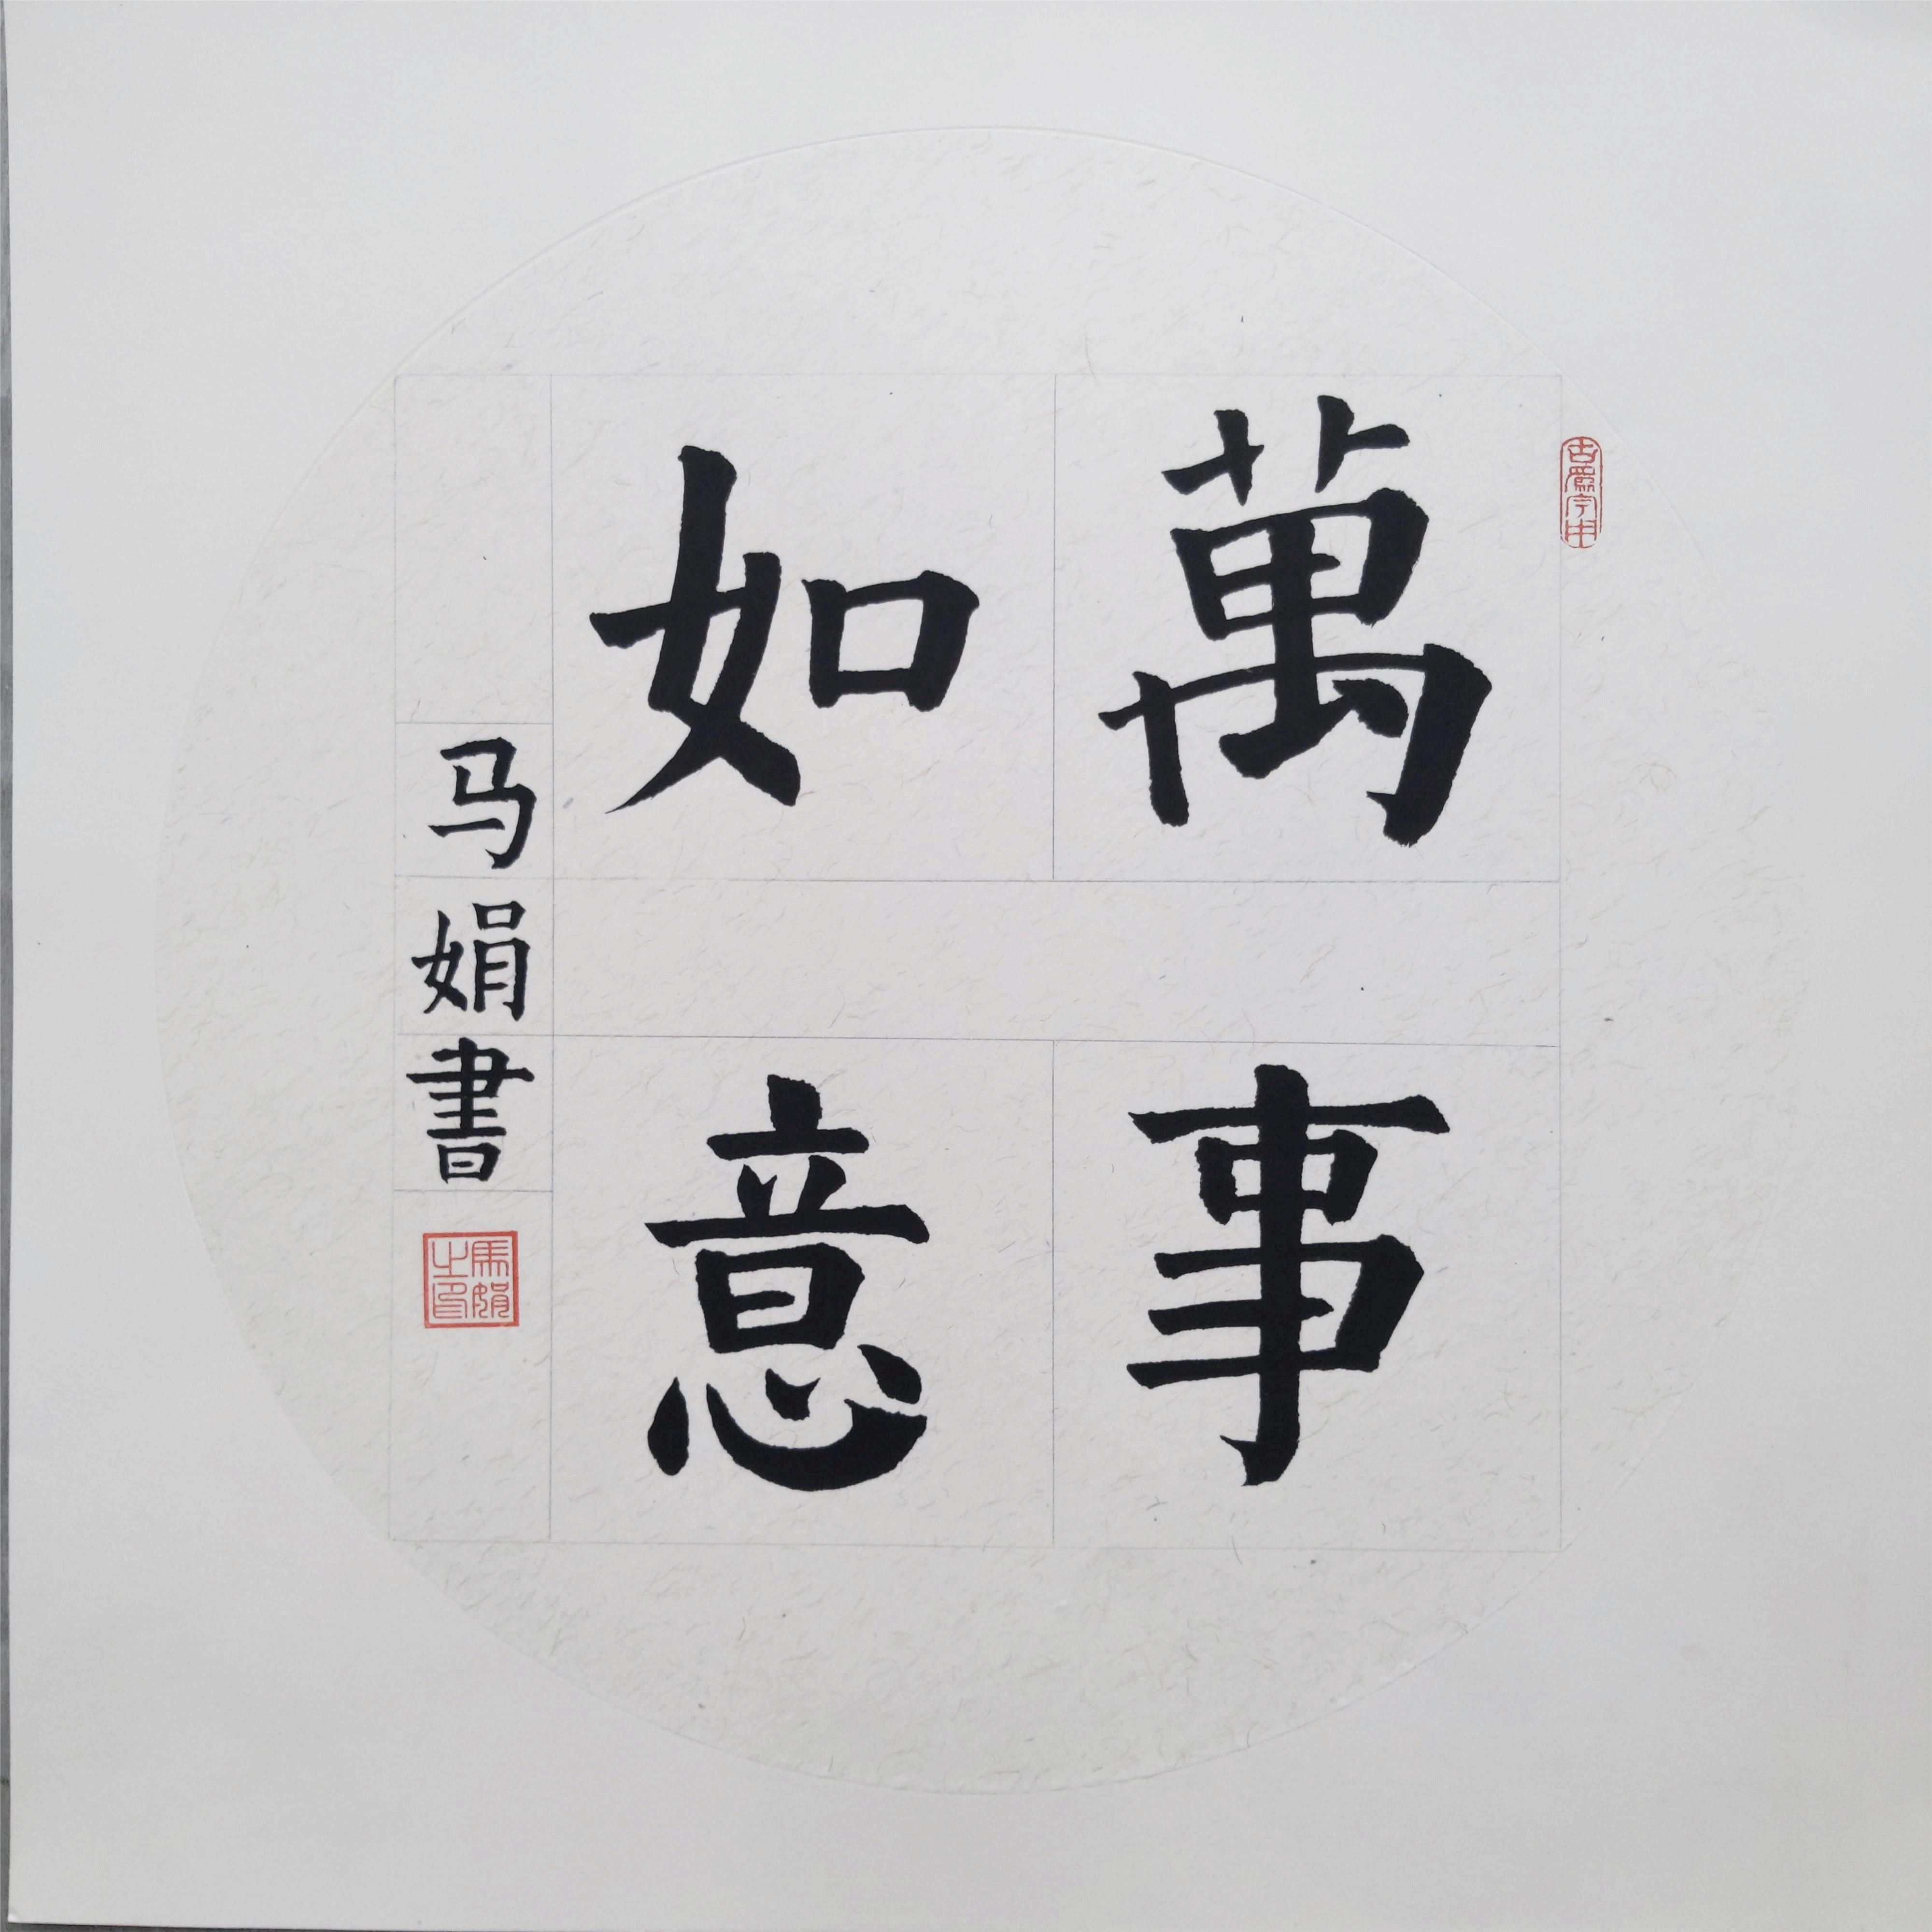 萬事
如意
马娟書
馬娟之印